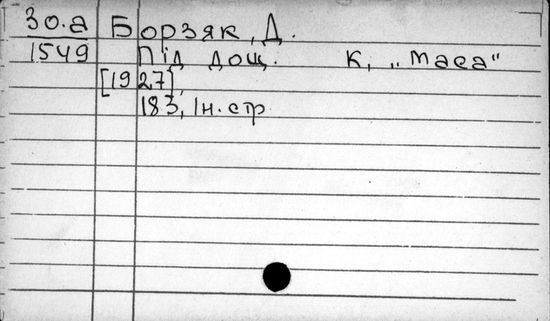 30.а Борзяк, Д.
1549 Під дощ. К, „Маса"
[1927],
183, Ін. стр